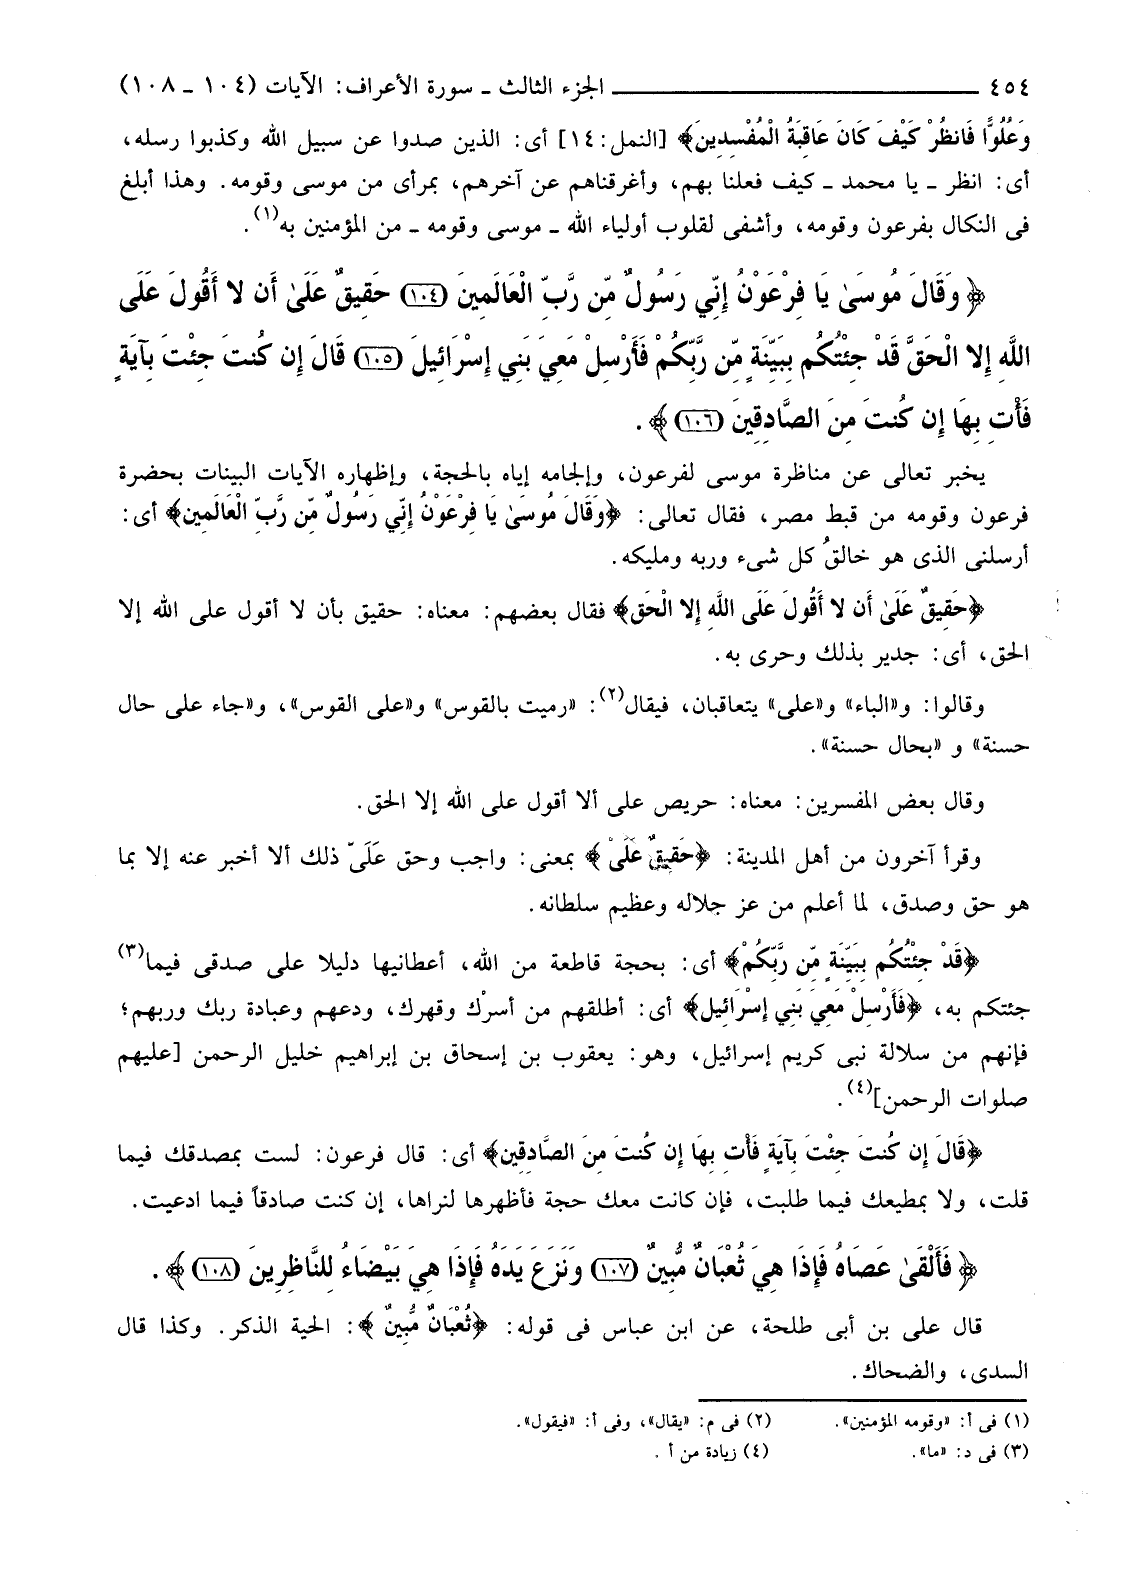 ٤٥٤ ــــــــ الجزء الثالث ـ سورة الأعراف: الآيات (١٠٤ ـ ١٠٨)
وَعُلُوًّا فَانظُرْ كَيْفَ كَانَ عَاقِبَةُ الْمُفْسِدِينَ﴾ [النمل:١٤] أى: الذين صدوا عن سبيل الله وكذبوا رسله،
أى: انظر ـ يا محمد ـ كيف فعلنا بهم، وأغرقناهم عن آخرهم، بمرأى من موسى وقومه. وهذا أبلغ
فى النكال بفرعون وقومه، وأشفى لقلوب أولياء الله ـ موسى وقومه ـ من المؤمنين به(١).
﴿ وَقَالَ مُوسَىٰ يَا فِرْعَوْنُ إِنِّي رَسُولٌ مِّن رَّبِّ الْعَالَمِينَ (١٠٤) حَقِيقٌ عَلَىٰ أَن لا أَقُولَ عَلَى
اللَّهِ إِلا الْحَقَّ قَدْ جِئْتُكُم بِبَيِّنَةٍ مِّن رَّبِّكُمْ فَأَرْسِلْ مَعِيَ بَنِي إِسْرَائِيلَ (١٠٥) قَالَ إِن كُنتَ جِئْتَ بِآيَةٍ
فَأْتِ بِهَا إِن كُنتَ مِنَ الصَّادِقِينَ (١٠٦) ﴾ .
يخبر تعالى عن مناظرة موسى لفرعون، وإلجامه إياه بالحجة، وإظهاره الآيات البينات بحضرة
فرعون وقومه من قبط مصر، فقال تعالى: ﴿وَقَالَ مُوسَىٰ يَا فِرْعَوْنُ إِنِّي رَسُولٌ مِّن رَّبِّ الْعَالَمِين﴾ أى:
أرسلنى الذى هو خالقُ كل شىء وربه ومليكه.
﴿حَقِيقٌ عَلَىٰ أَن لا أَقُولَ عَلَى اللَّهِ إِلا الْحَق﴾ فقال بعضهم: معناه: حقيق بأن لا أقول على الله إلا
الحق، أى: جدير بذلك وحرى به.
وقالوا: و«الباء» و«على» يتعاقبان، فيقال(٢): «رميت بالقوس» و«على القوس»، و«جاء على حال
حسنة» و «بحال حسنة».
وقال بعض المفسرين: معناه: حريص على ألا أقول على الله إلا الحق.
وقرأ آخرون من أهل المدينة: ﴿حَقِيقٌ عَلَىَّ ﴾ بمعنى: واجب وحق عَلَىّ ذلك ألا أخبر عنه إلا بما
هو حق وصدق، لما أعلم من عز جلاله وعظيم سلطانه.
﴿قَدْ جِئْتُكُم بِبَيِّنَةٍ مِّن رَّبِّكُمْ﴾ أى: بحجة قاطعة من الله، أعطانيها دليلا على صدقى فيما(٣)
جئتكم به، ﴿فَأَرْسِلْ مَعِيَ بَنِي إِسْرَائِيل﴾ أى: أطلقهم من أسرْك وقهرك، ودعهم وعبادة ربك وربهم؛
فإنهم من سلالة نبى كريم إسرائيل، وهو: يعقوب بن إسحاق بن إبراهيم خليل الرحمن [عليهم
صلوات الرحمن](٤).
﴿قَالَ إِن كُنتَ جِئْتَ بِآيَةٍ فَأْتِ بِهَا إِن كُنتَ مِنَ الصَّادِقِين﴾ أى: قال فرعون: لست بمصدقك فيما
قلت، ولا بمطيعك فيما طلبت، فإن كانت معك حجة فأظهرها لنراها، إن كنت صادقاً فيما ادعيت.
﴿ فَأَلْقَىٰ عَصَاهُ فَإِذَا هِيَ ثُعْبَانٌ مُّبِينٌ (١٠٧) وَنَزَعَ يَدَهُ فَإِذَا هِيَ بَيْضَاءُ لِلنَّاظِرِينَ (١٠٨) ﴾ .
قال على بن أبى طلحة، عن ابن عباس فى قوله: ﴿ثُعْبَانٌ مُّبِينٌ ﴾: الحية الذكر. وكذا قال
السدى، والضحاك.
(١) فى أ: «وقومه المؤمنين». (٢) فى م: «يقال»، وفى أ: «فيقول».
(٣) فى د: «ما». (٤) زيادة من أ .